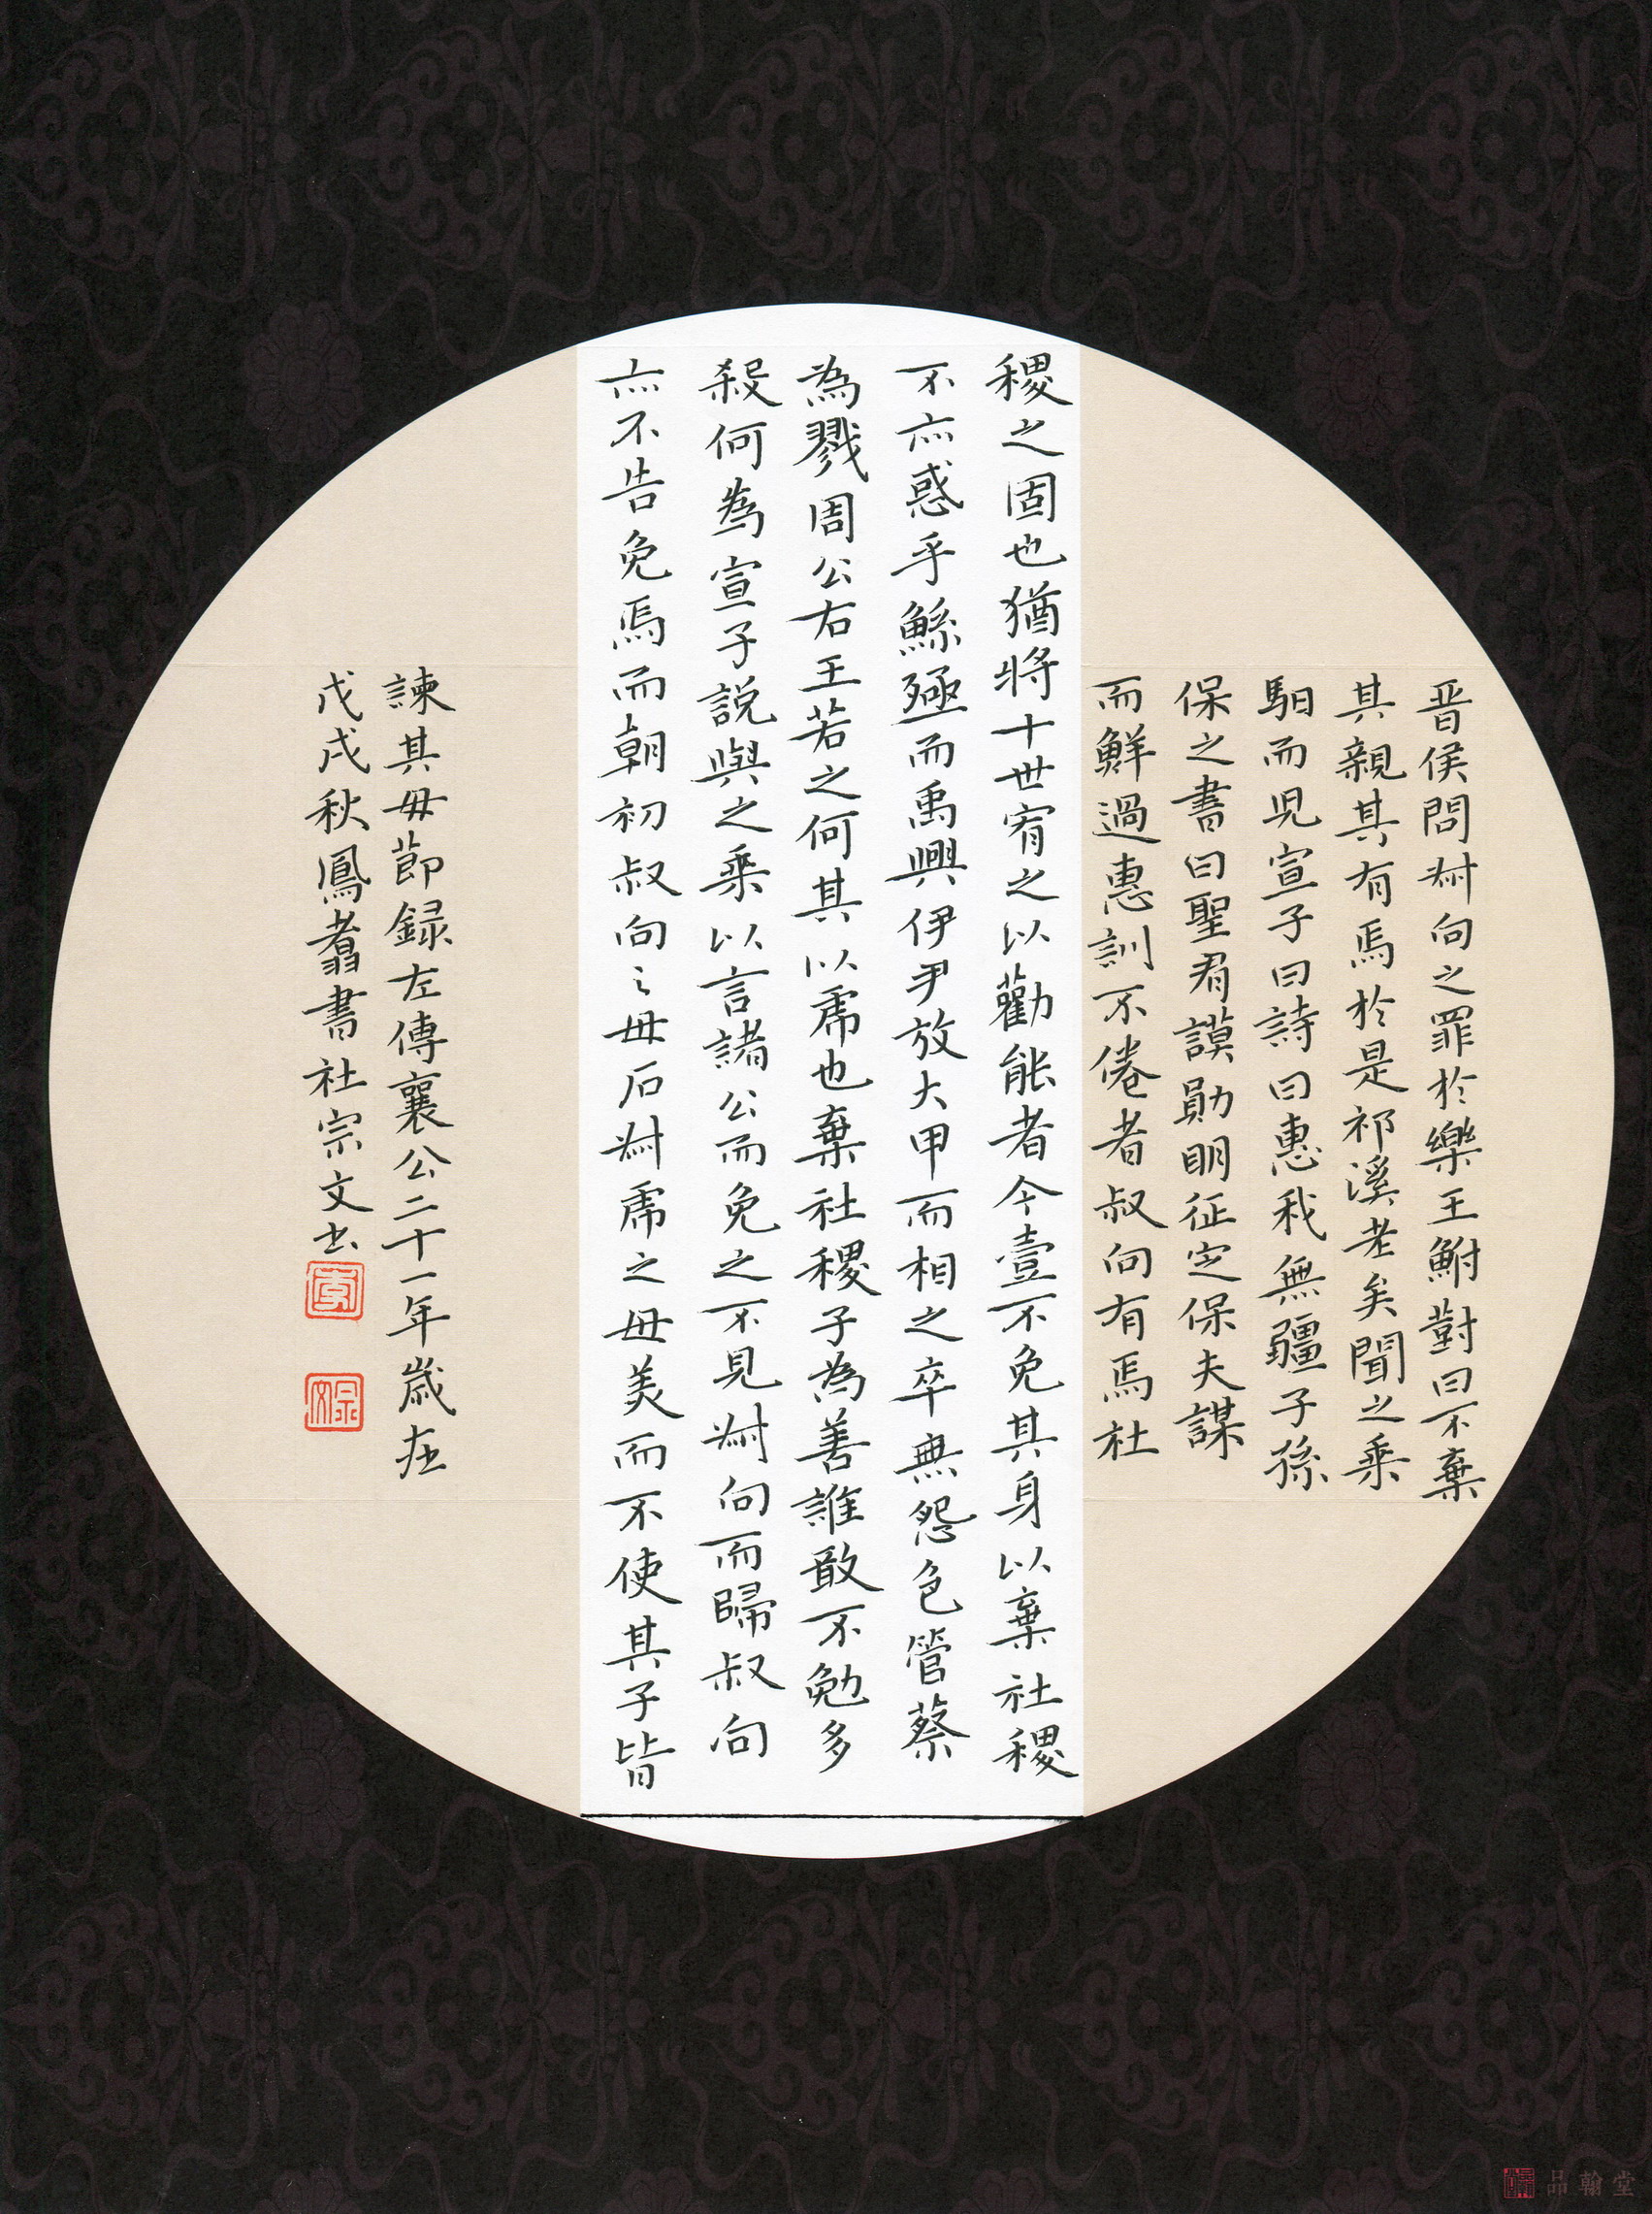 晋侯問叔向之罪於樂王鮒對曰不棄
其親其有焉於是祁溪老矣聞之乘
馹而見宣子曰詩曰惠我無疆子孫
保之書曰聖有謨勛明征定保夫謀
而鮮過惠訓不倦者叔向有焉社
稷之固也猶將十世宥之以勸能者今壹不免其身以棄社稷
不亦惑乎鯀殛而禹興伊尹放大甲而相之卒無怨色管蔡
為戮周公右王若之何其以虎也棄社稷子為善誰敢不勉多
殺何為宣子説與之乘以言諸公而免之不見叔向而歸叔向
亦不告免焉而朝初叔向之母石叔虎之母美而不使其子皆
諫其母節録左傳襄公二十一年歲在
戊戌秋鳳翥書社宗文书
品翰堂